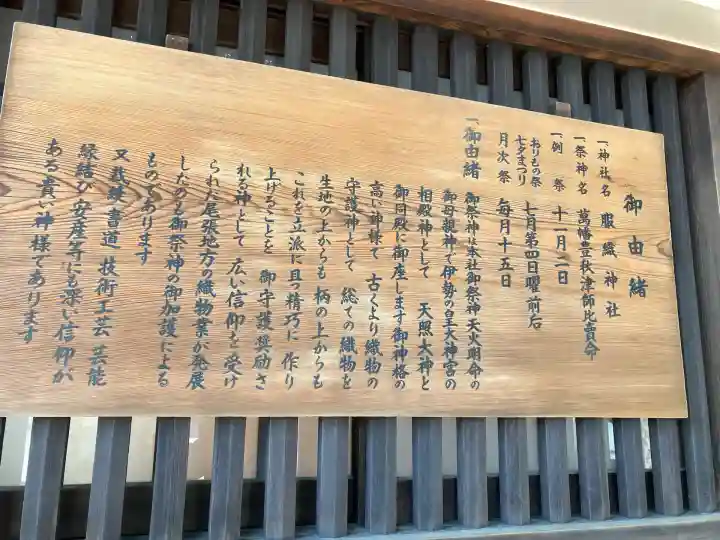 御由緒
一神社名 服織神社
一祭神名 萬幡豊秋津師比賣命
一例祭 十一月二日
おりもの祭
七夕まつり 七月第四日曜前后
月次祭 毎月十五日
一御由緒 御祭神は本社御祭神天火明命の
御母親神で伊勢の皇大神宮の
相殿神として 天照大神と
御同殿に御座します御神格の
高い神様で 古くより織物の
守護神として 総ての織物を
生地の上からも 柄の上からも
これを立派に且つ精巧に 作り
上げることを 御守護奨励さ
れる神として 広い信仰を 受け
られた尾張地方の織物業が発展
したのも御祭神の御加護による
ものであります
又裁縫書道 技術工芸 芸能
縁結び 安産等にも深い信仰が
ある貴い神様であります